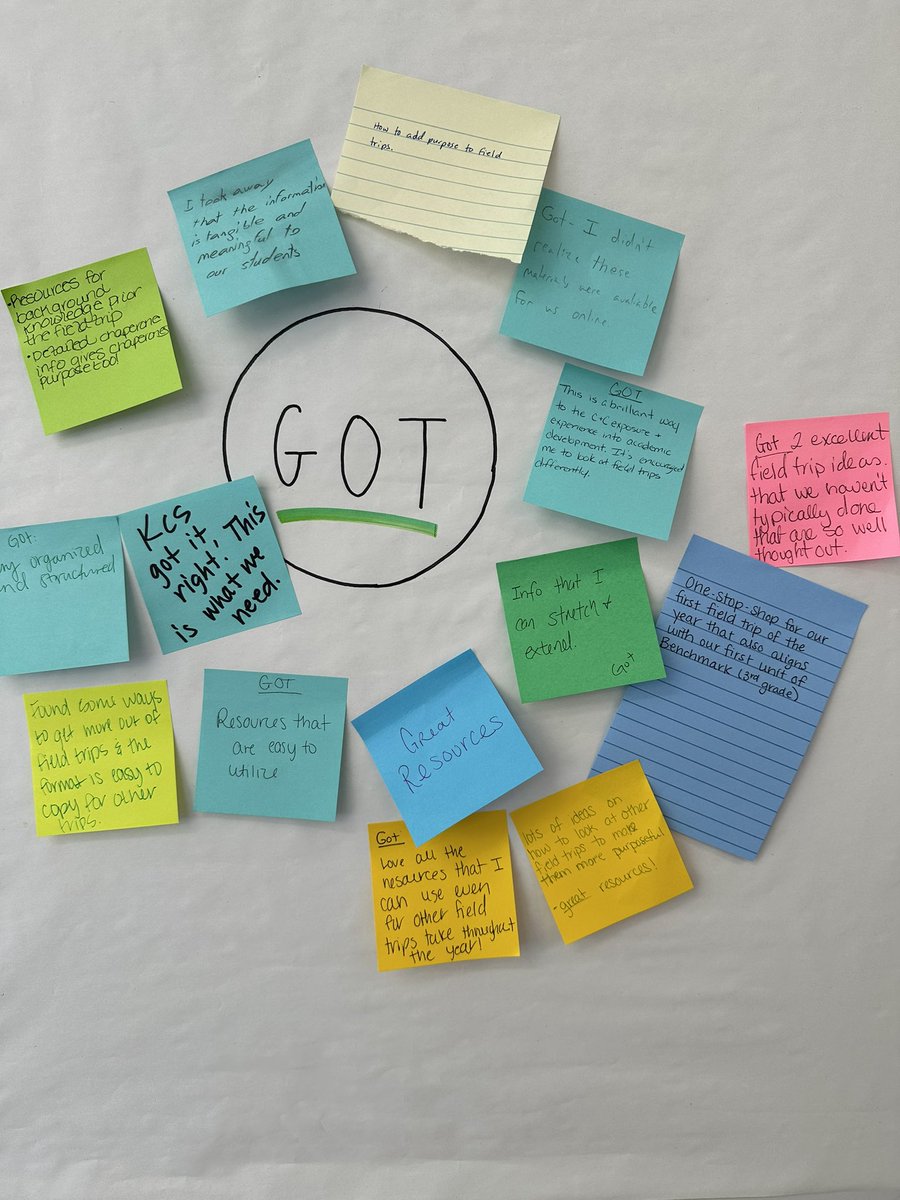 How to add purpose to field
trips.
I took away
that the information
is tangible and
meaningful to
our students
Got - I didn't
realize these
materials were available
for us online
•Resources for
background
knowledge prior
the field trip
•Detailed chaperone
info gives chaperones
purpose too!
GOT
GOT
This is a brilliant way
to tie C+C exposure +
experience into academic
development. It's encouraged
me to look at field trips
differently.
Got 2 excellent
field trip ideas.
that we haven't
typically done
that are so well
thought out.
Got:
organized
and structured
KCS
got it
right. This
is what we
need.
Info that I
can stretch &
extend.
Got
One-stop-shop for our
first field trip of the
year that also aligns
with our first unit of
Benchmark (3rd grade)
Found some ways
to get more out of
field trips & the
format is easy to
copy for other
trips.
GOT
Resources that
are easy to
utilize
Great
Resources
Got
Love all the
resources that I
can use even
for other field
trips take throughout
the year!
lots of ideas on
how to look at other
field trips to make
them more purposeful
-great resources!